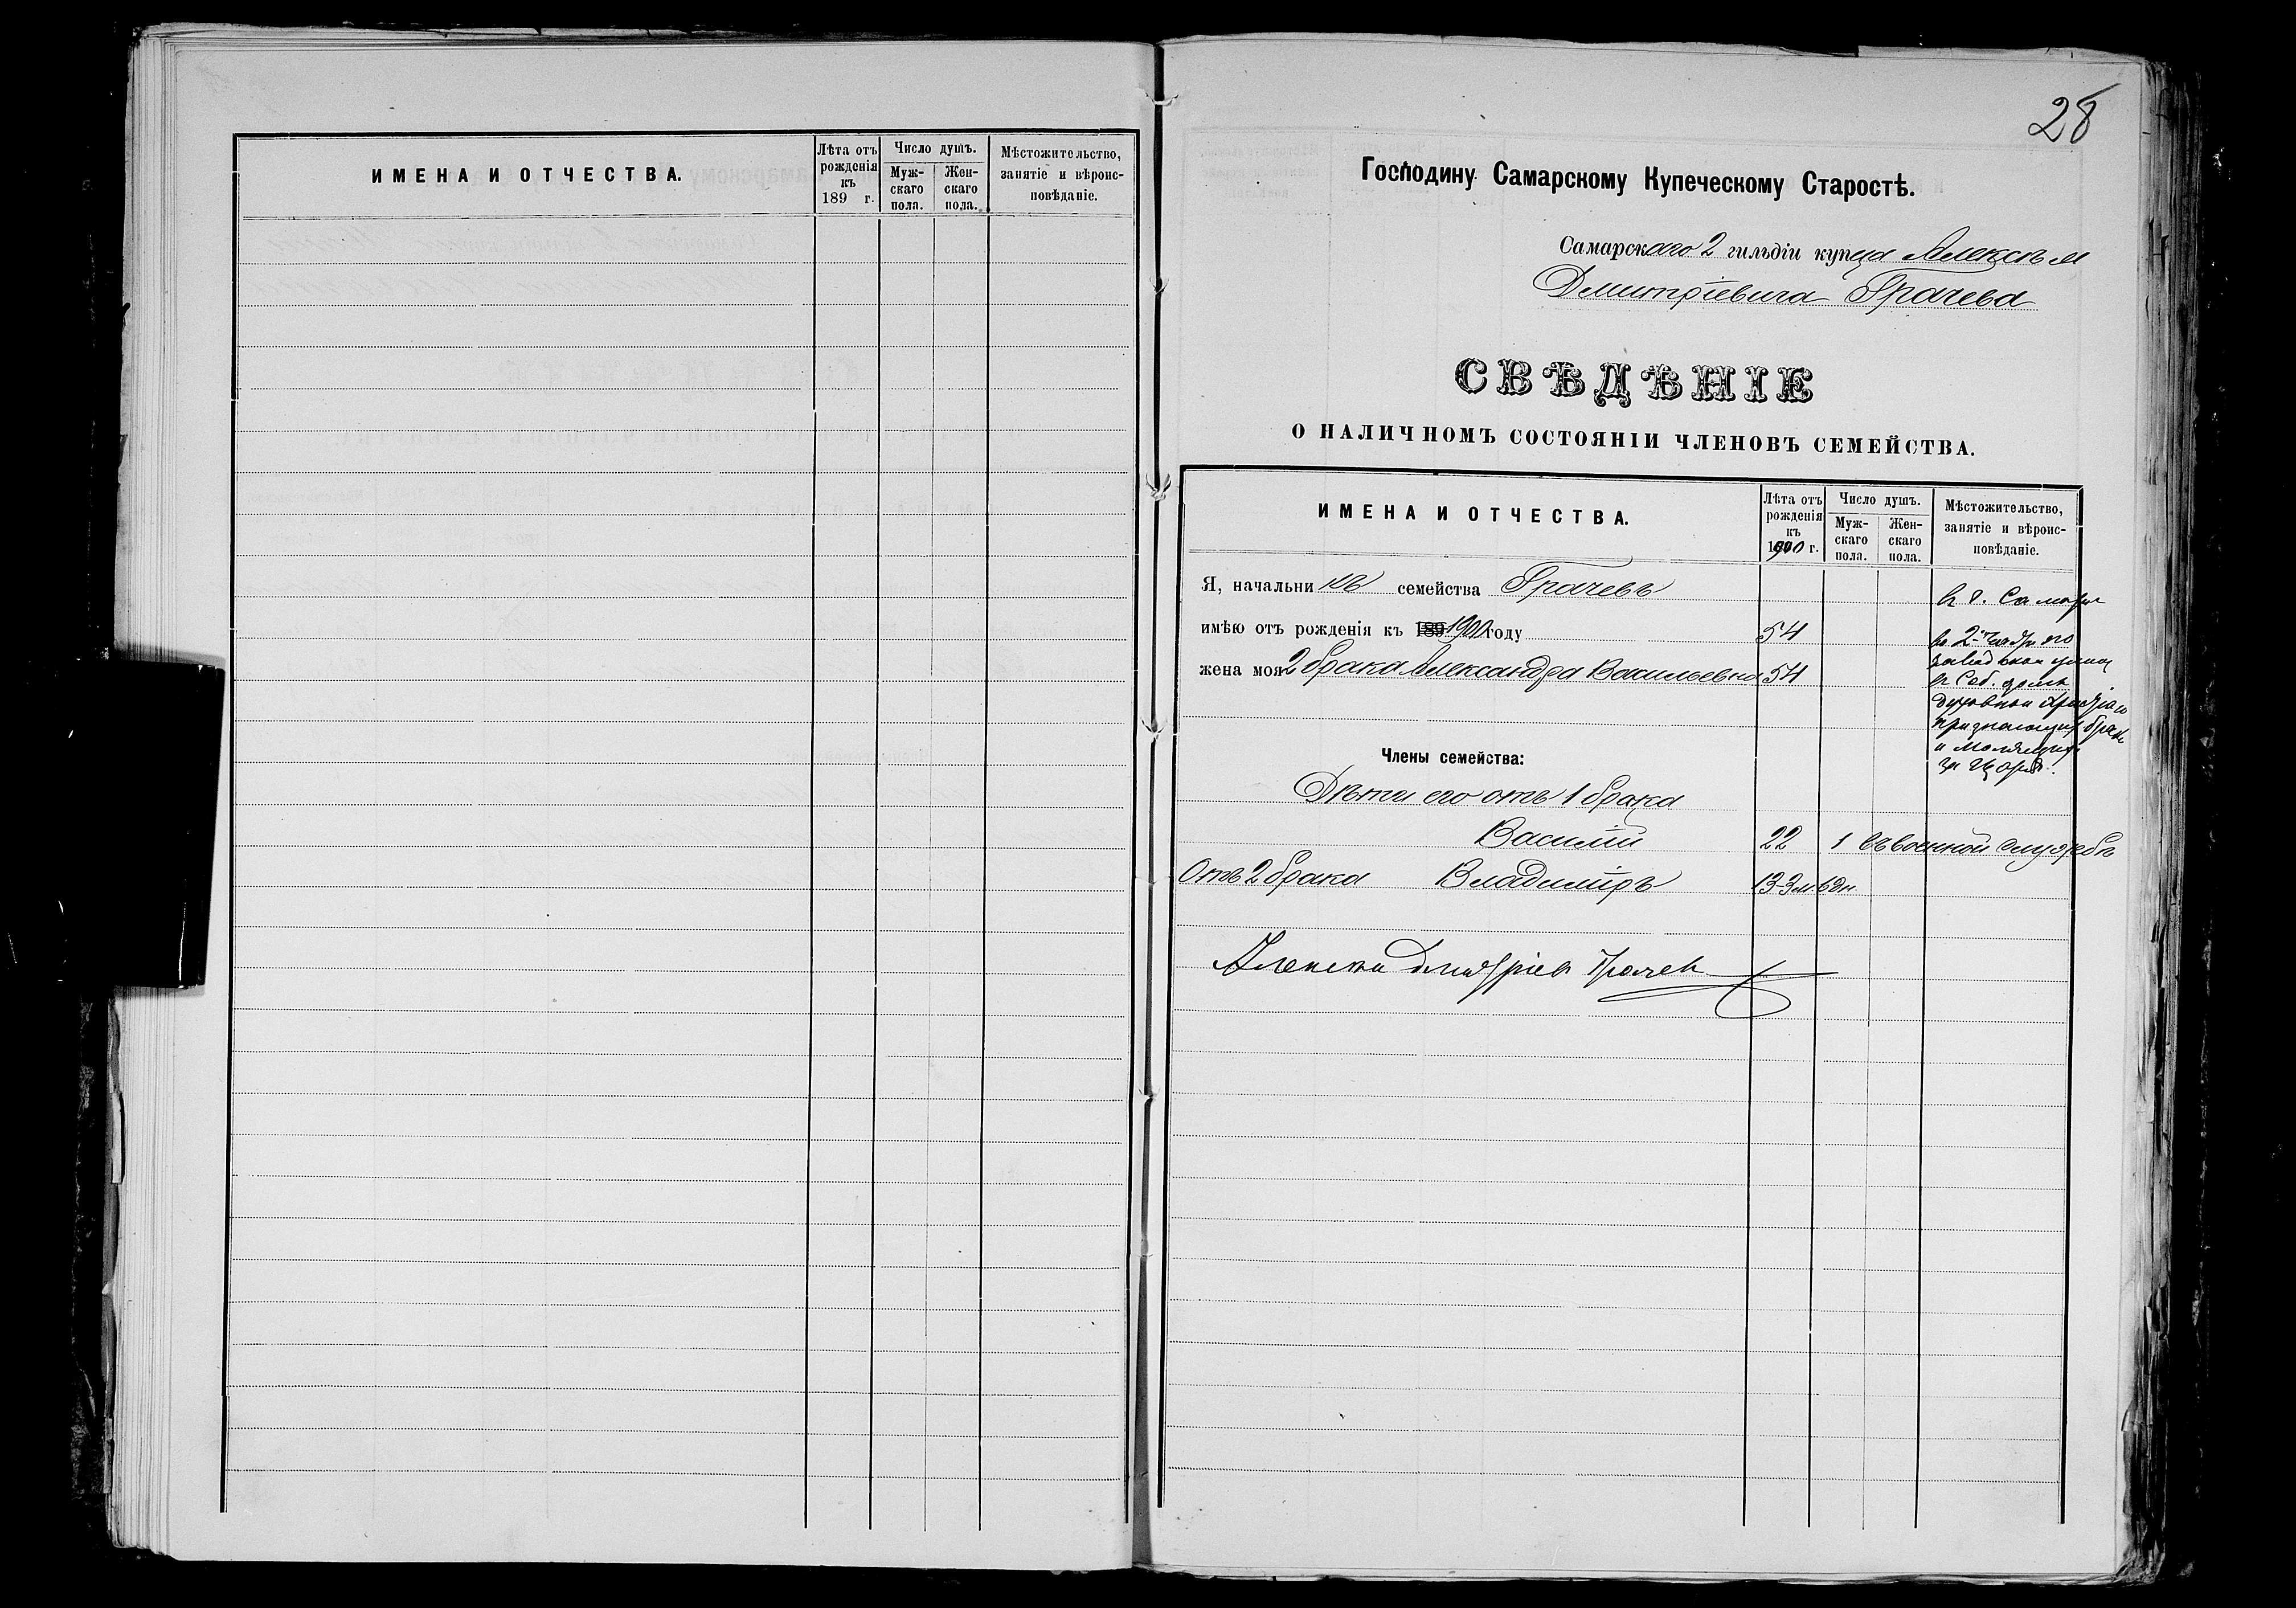 ИМЕНА И ОТЧЕСТВА.
Лѣта отъ рожденія къ 189 г.
Число душъ.
Мужскаго пола.
Женскаго пола.
Мѣстожительство, занятіе и вѣроисповѣданіе.
28
Господину Самарскому Купеческому Старостѣ.
Самарскаго 2 гильдіи купца Алексѣя
Дмитріевича Грачева
СВѢДѢНІЕ
О НАЛИЧНОМЪ СОСТОЯНІИ ЧЛЕНОВЪ СЕМЕЙСТВА.
ИМЕНА И ОТЧЕСТВА.
Лѣта отъ рожденія къ 1900 г.
Число душъ.
Мужскаго пола.
Женскаго пола.
Мѣстожительство, занятіе и вѣроисповѣданіе.
Я, начальникъ семейства Грачевъ
имѣю отъ рожденія къ 189 1900 году 54
жена моя 2 брака Александра Васильевна 54
в г. Самаре
во 2-й
в Соб. доме
духовнои
и молящих
за Царя.
Члены семейства:
Дѣти его отъ 1 брака
Василій 22 1 въ военной службѣ
Отъ 2 брака Владиміръ 13-3м 6дн
Алексеи Дмитріев Грачев